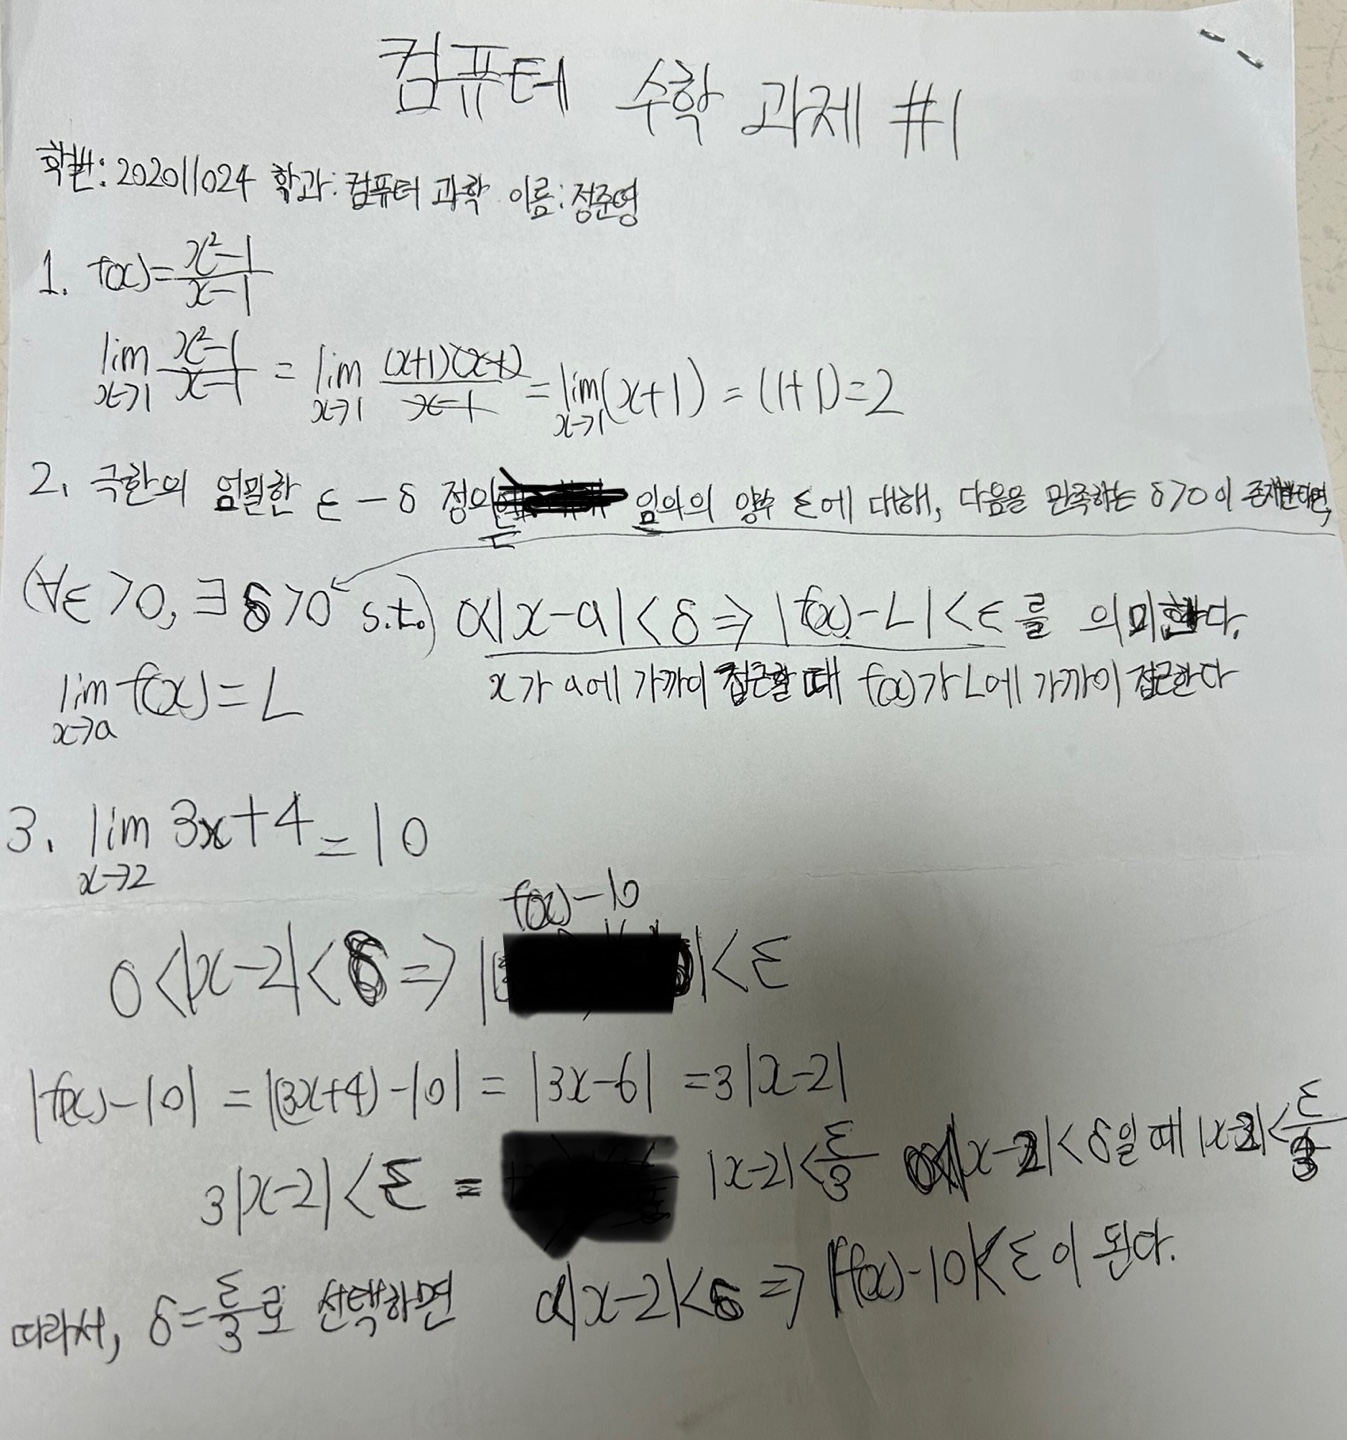 컴퓨터 수학 과제 #1
학번: 202011024 학과: 컴퓨터 과학 이름: 정준영
1. f(x)=\frac{x²-1}{x-1}
lim_{x→1} \frac{x²-1}{x-1} = lim_{x→1} \frac{(x+1)(x-1)}{x-1} = lim_{x→1}(x+1) = (1+1)=2
2. 극한의 엄밀한 ε-δ 정의는 임의의 양수 ε에 대해, 다음을 만족하는 δ>0이 존재한다면,
(∀ε>0, ∃δ>0 s.t.) 0<|x-a|<δ ⇒ |f(x)-L|<ε를 의미한다.
lim_{x→a} f(x)=L
x가 a에 가까이 접근할 때 f(x)가 L에 가까이 접근한다
3. lim_{x→2} 3x+4=10
f(x)-10
0<|x-2|<δ ⇒ | |<ε
|f(x)-10| = |(3x+4)-10| = |3x-6| =3|x-2|
3|x-2|<ε = |x-2|<\frac{ε}{3} 0<|x-2|<δ일 때 |x-2|<\frac{ε}{3}
따라서, δ=\frac{ε}{3}로 선택하면 0<|x-2|<δ ⇒ |f(x)-10|<ε이 된다.